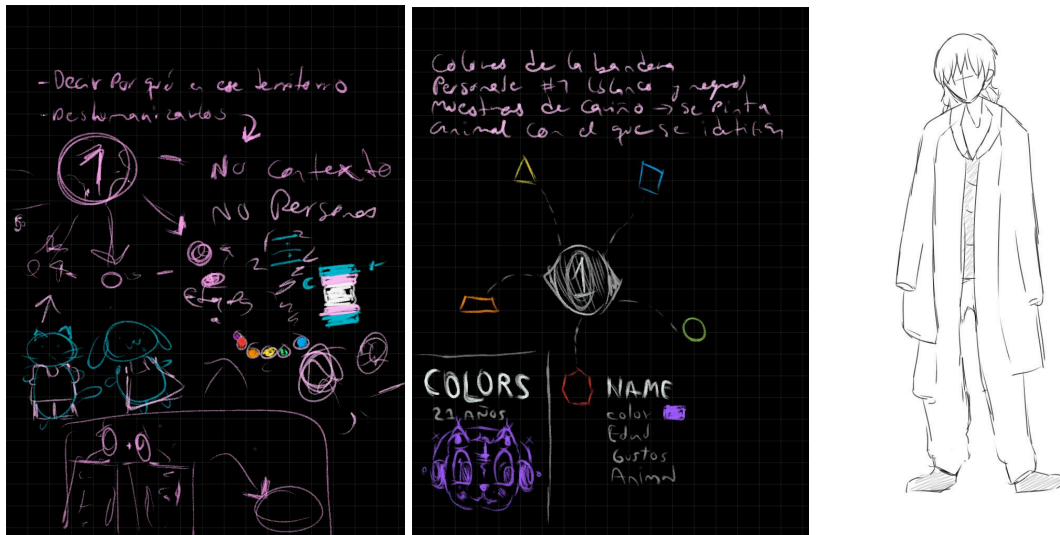 - Decir Por qué en ese territorio
- Deshumanizarlos
1
NO Contexto
NO Personas
Colores de la bandera
Personaje #1 (blanco y negro)
Muestras de cariño → se pinta
animal con el que se identifican
1
COLORS
21 AÑOS
NAME
color
Edad
Gustos
Animal